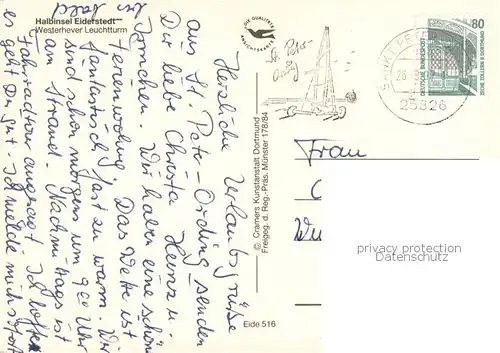 Halbinsel Eiderstedt
Westerhever Leuchtturm
Herzliche Urlaubsgrüße
aus St. Peter-Ording senden
Dir liebe Christa Heinz u.
Wir haben eine schöne
Ferienwohnung. Das Wetter ist
fantastisch fast zu warm. Wir
sind schon morgens um 9.00 Uhr
am Strand. Nachmittags ist
Fahrradtour angesagt. Ich hoffe
es geht Dir gut. Ich melde mich sofort
bald
DIE QUALITÄTS
ANSICHTSKARTE
© Cramers Kunstanstalt Dortmund
Freigeg. d. Reg.-Präs. Münster 178/84
Eide 516
St. Peter-
Ording
25826
DEUTSCHE BUNDESPOST
80
ZECHE ZOLLERN II DORTMUND
Frau
privacy protection
Datenschutz